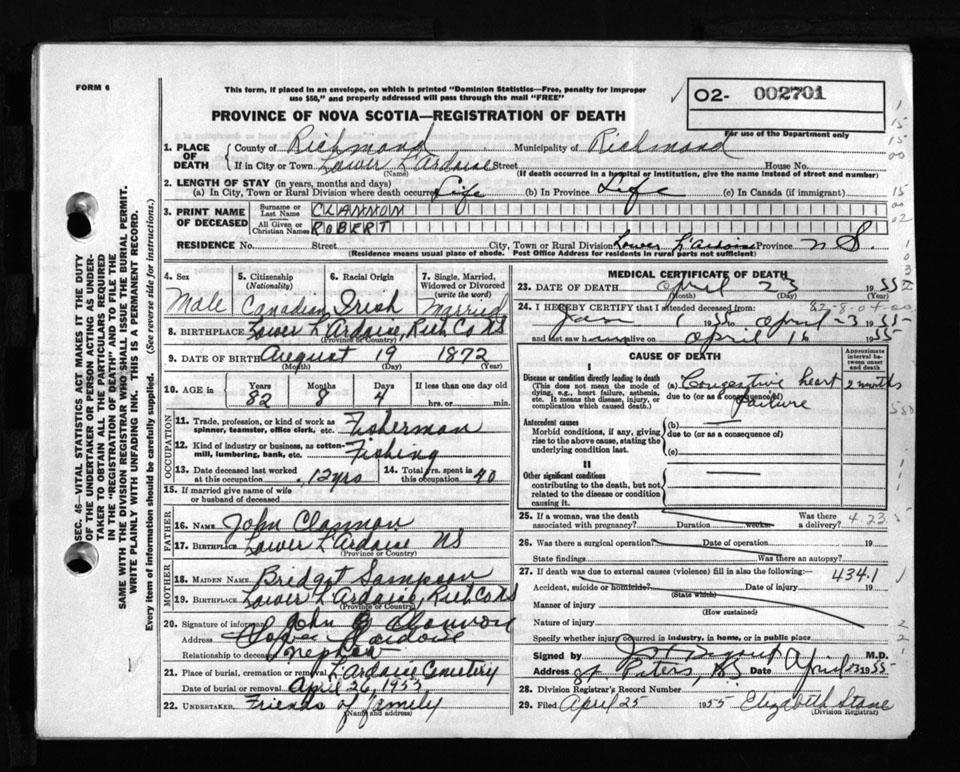 FORM 6
This form, if placed in an envelope, on which is printed "Dominion Statistics—Free, penalty for improper
use $50," and properly addressed will pass through the mail "FREE"
02- 002701
For use of the Department only
PROVINCE OF NOVA SCOTIA—REGISTRATION OF DEATH
1. PLACE OF DEATH
County of Richmond Municipality of Richmond
If in City or Town Lower L'Ardoise Street House No.
(Name) (If death occurred in a hospital or institution, give the name instead of street and number)
2. LENGTH OF STAY (in years, months and days)
(a) In City, Town or Rural Division where death occurred Life (b) In Province Life (c) In Canada (if immigrant)
3. PRINT NAME OF DECEASED
Surname or Last Name CLANNON
All Given or Christian Names ROBERT
RESIDENCE No. Street City, Town or Rural Division Lower L'Ardoise Province N S.
(Residence means usual place of abode. Post Office Address for residents in rural parts not sufficient)
4. Sex
Male
5. Citizenship
(Nationality)
Canadian
6. Racial Origin
Irish
7. Single, Married, Widowed or Divorced
(write the word)
Married
8. BIRTHPLACE Lower L'Ardoise, Rich Co NS
(Province or Country)
9. DATE OF BIRTH August 19 1872
(Month) (Day) (Year)
10. AGE in
Years 82
Months 8
Days 4
If less than one day old
hrs. or min.
OCCUPATION
11. Trade, profession, or kind of work as
spinner, teamster, office clerk, etc. Fisherman
12. Kind of industry or business, as cotton-
mill, lumbering, bank, etc. Fishing
13. Date deceased last worked
at this occupation 12 yrs
14. Total yrs. spent in
this occupation 40
15. If married give name of wife
or husband of deceased
FATHER
16. NAME John Clannon
17. BIRTHPLACE Lower L'Ardoise NS
(Province or Country)
MOTHER
18. MAIDEN NAME Bridget Sampson
19. BIRTHPLACE Lower L'Ardoise, Rich Co NS
(Province or Country)
20. Signature of informant John B Clannon
Address Lower Lardoise
Relationship to deceased nephew
21. Place of burial, cremation or removal L'Ardoise Cemetery
Date of burial or removal April 26, 1953
22. UNDERTAKER Friends of family
(Name and address)
MEDICAL CERTIFICATE OF DEATH
23. DATE OF DEATH April 23 1955
(Month) (Day) (Year)
24. I HEREBY CERTIFY that I attended deceased from: 82-8-04-00
Jan 1 1955 to April 23 1955
and last saw h im alive on April 16 1955
CAUSE OF DEATH
Approximate interval between onset and death
I
Disease or condition directly leading to death
(This does not mean the mode of
dying, e.g., heart failure, asthenia,
etc. It means the disease, injury, or
complication which caused death.)
(a) Congestive heart failure 2 months
due to (or as a consequence of)
Antecedent causes
Morbid conditions, if any, giving
rise to the above cause, stating the
underlying condition last.
(b)
due to (or as a consequence of)
(c)
II
Other significant conditions
contributing to the death, but not
related to the disease or condition
causing it.
25. If a woman, was the death
associated with pregnancy? Duration weeks Was there
a delivery? 4.23.
26. Was there a surgical operation? Date of operation 19
State findings Was there an autopsy?
27. If death was due to external causes (violence) fill in also the following:— 434.1
Accident, suicide or homicide? Date of injury 19
(State which)
Manner of injury
(How sustained)
Nature of injury
Specify whether injury occurred in industry, in home, or in public place
Signed by M.D.
Address St. Peters, NS Date April 23 1955
28. Division Registrar's Record Number
29. Filed April 25 1955 Elizabeth Stone
(Division Registrar)
SEC. 46—VITAL STATISTICS ACT MAKES IT THE DUTY
OF THE UNDERTAKER OR PERSON ACTING AS UNDER-
TAKER TO OBTAIN ALL THE PARTICULARS REQUIRED
IN THE "REGISTRATION OF DEATH" AND TO FILE THE
SAME WITH THE DIVISION REGISTRAR WHO SHALL ISSUE THE BURIAL PERMIT.
WRITE PLAINLY WITH UNFADING INK. THIS IS A PERMANENT RECORD.
Every item of information should be carefully supplied. (See reverse side for instructions.)